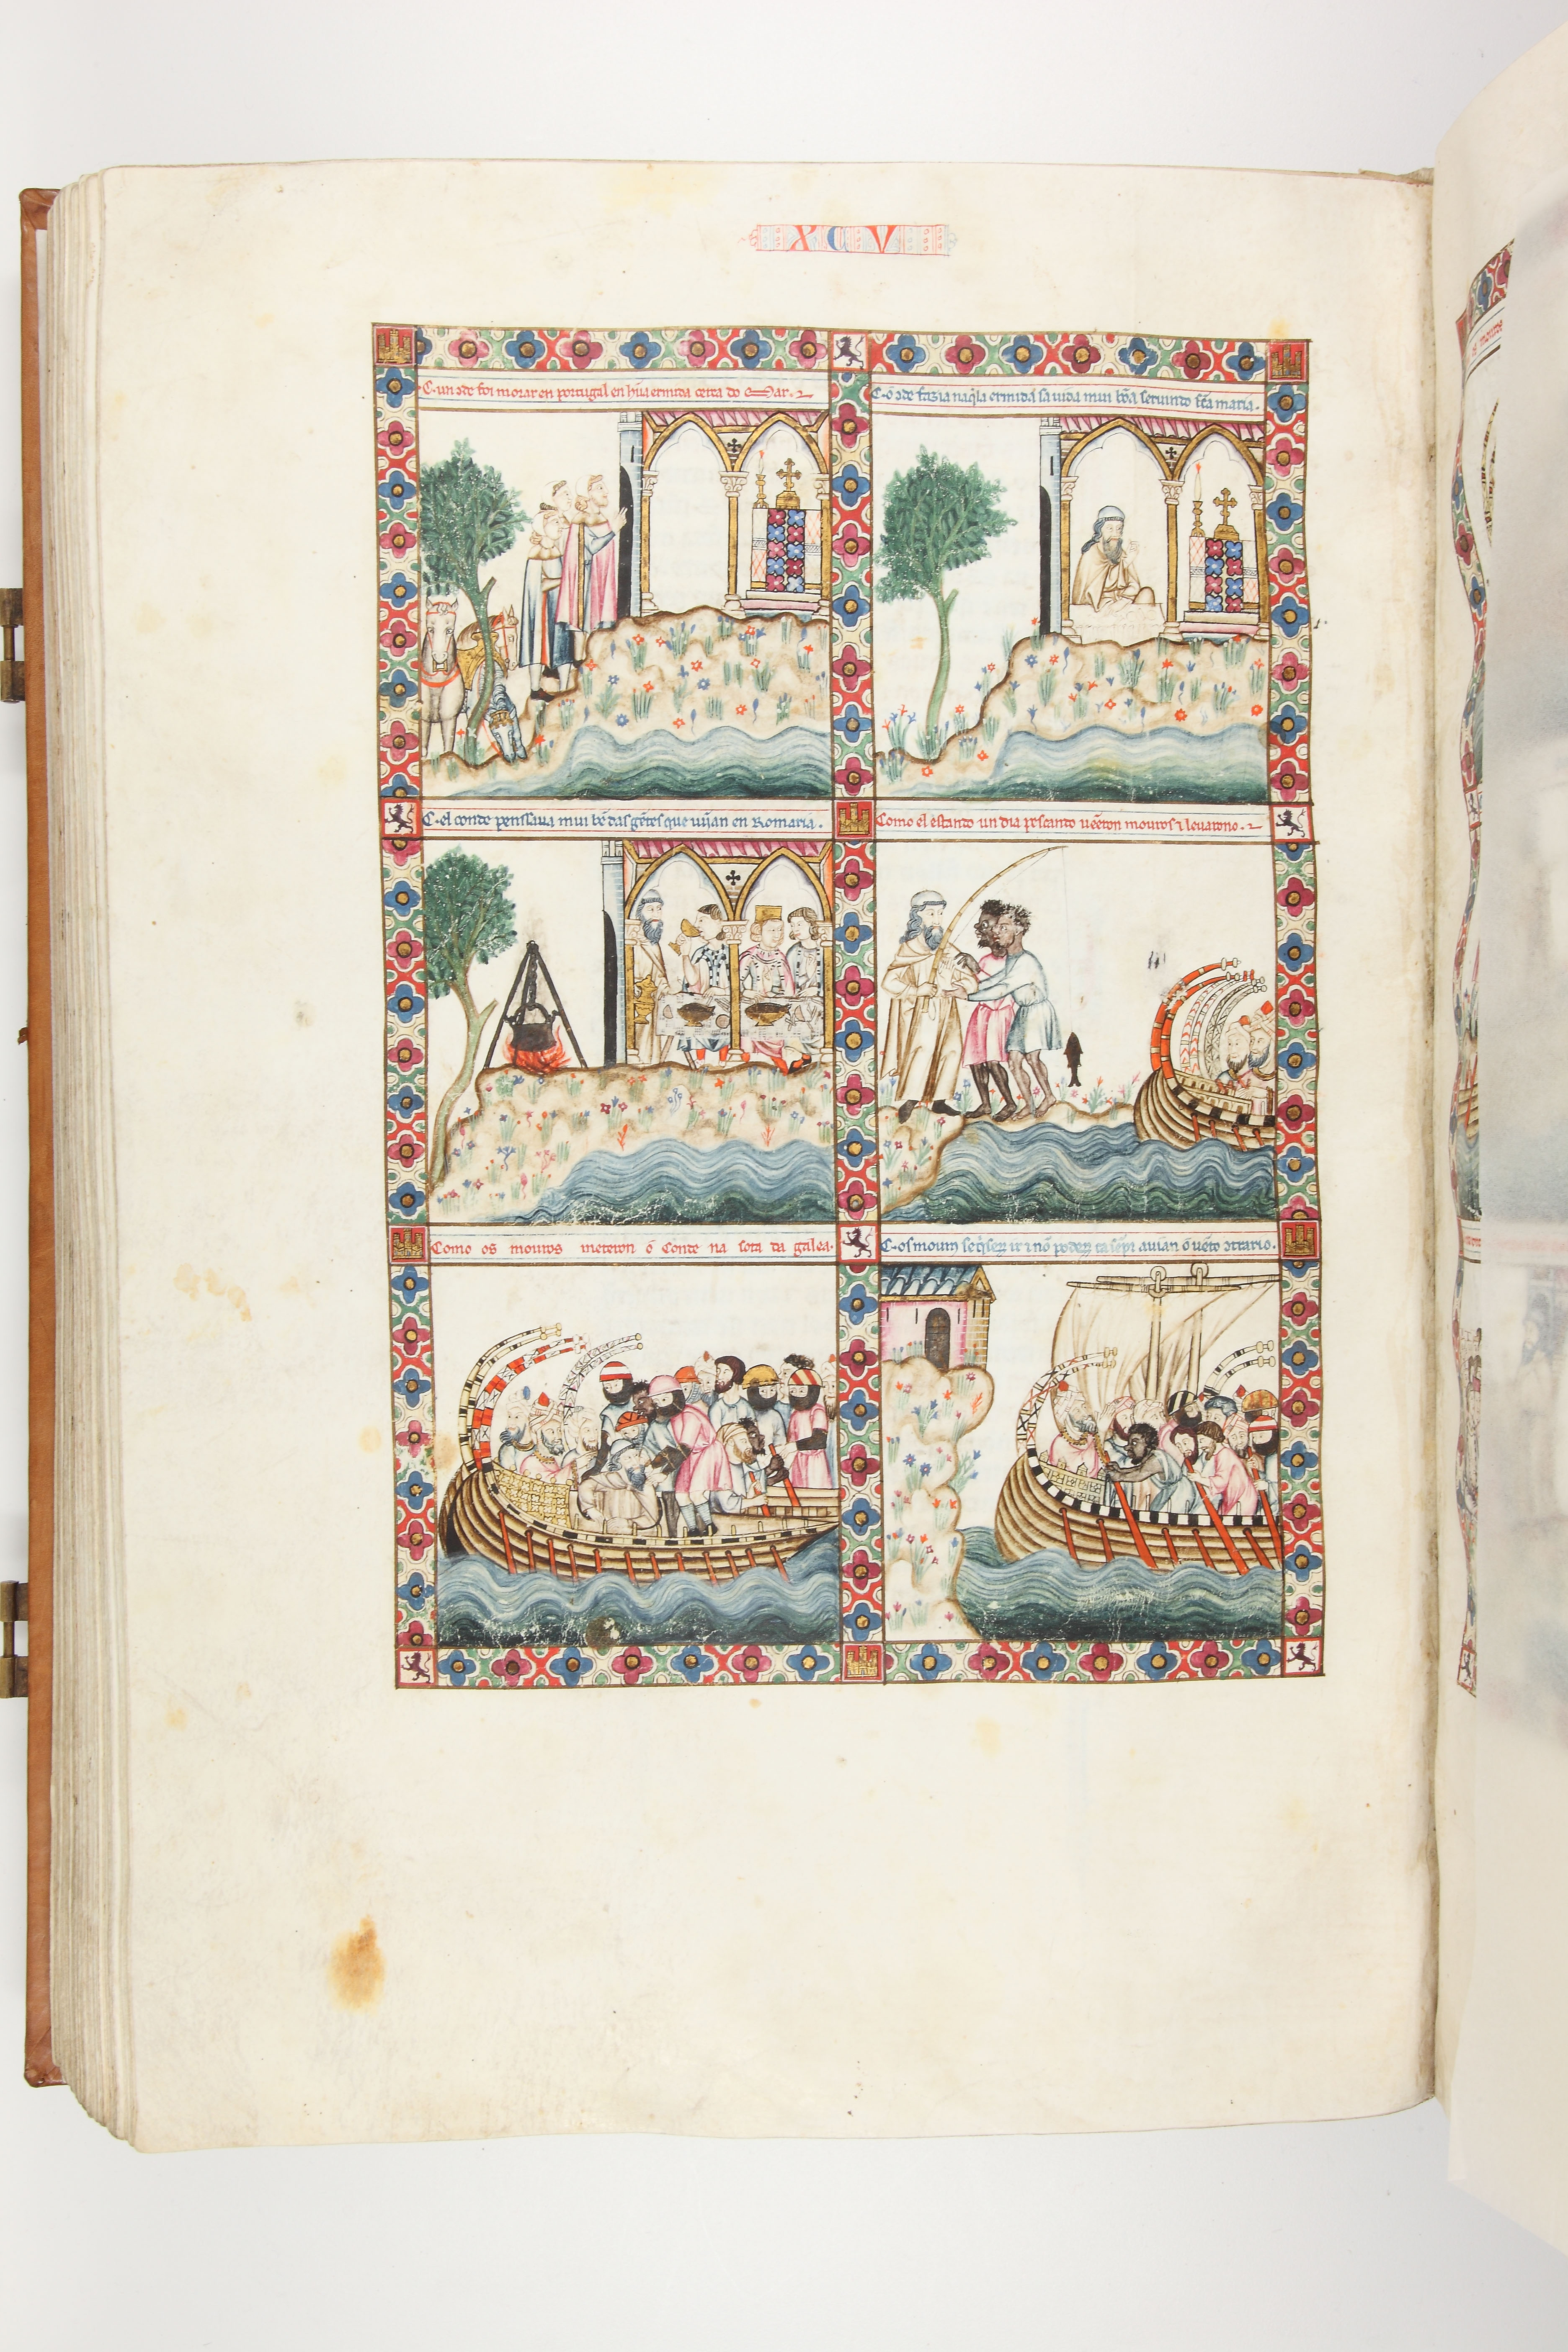 XCV
C. un ɔde foi morar en portugal en hũa ermida cerca do Mar.
C. o ɔde fazia naq̃la ermida sa uida mui bõa seruindo sc̃a maria.
C. el conde penssaua mui bẽ das gẽtes que uĩjan en Romaria.
Como el estando un dia pescando uẽeron mouros ⁊ leuarono.
Como os mouros meteron o Conde na sota da galea.
C. os mouros se q̃seꝝ ir ⁊ nõ podeꝝ ca sẽpr̃ auian o uẽto ɔtrario.